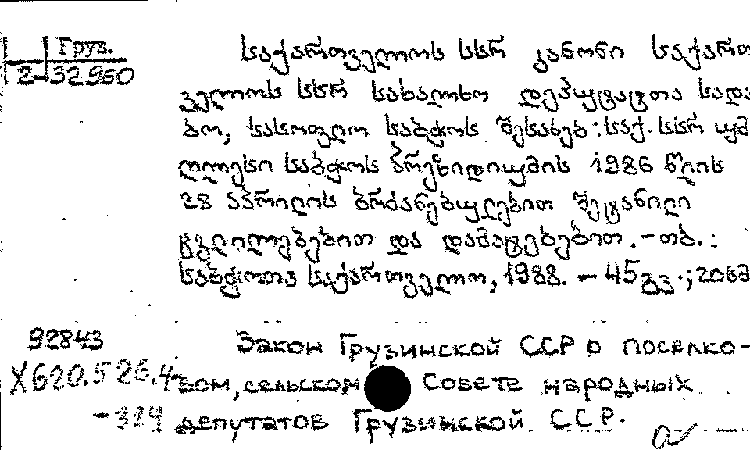 Груз.
2-32950
საქართველოს სსრ კანონი საქართ
ველოს სსრ სახალხო დეპუტატთა სადა
ბო, სასოფლო საბჭოს შესახებ: საქ. სსრ უმ
ღლესი საბჭოს პრეზიდიუმის 1986 წლის
28 აპრილის ბრძანებულებით შეტანილი
ცვლილებებით და დამატებებით. - თბ.:
საბჭოთა საქართველო, 1988. - 45 გვ.; 20სმ
92843
Закон Грузинской ССР о поселко-
Х620.526.4-
вом, сельском Совете народных
-324
депутатов Грузинской ССР.